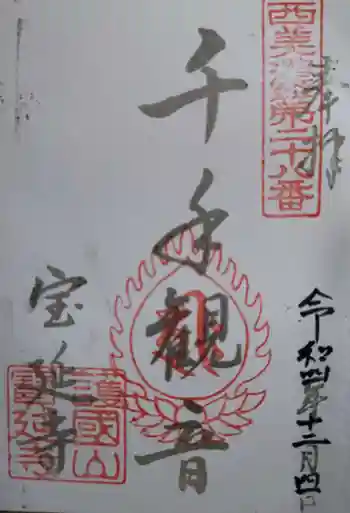 西美濃第二十八番
奉拝
令和四年十二月四日
千手観音
宝延寺
護國山
寳延寺